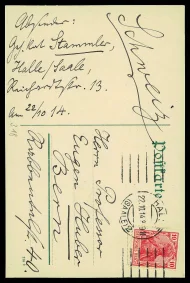 Absender:
Geh. Rat Stammler,
Halle / Saale,
Reichardtstr. 13.
am 22/10 14.
Schweiz
Postkarte
Herrn Professor
Eugen Huber
Bern
10